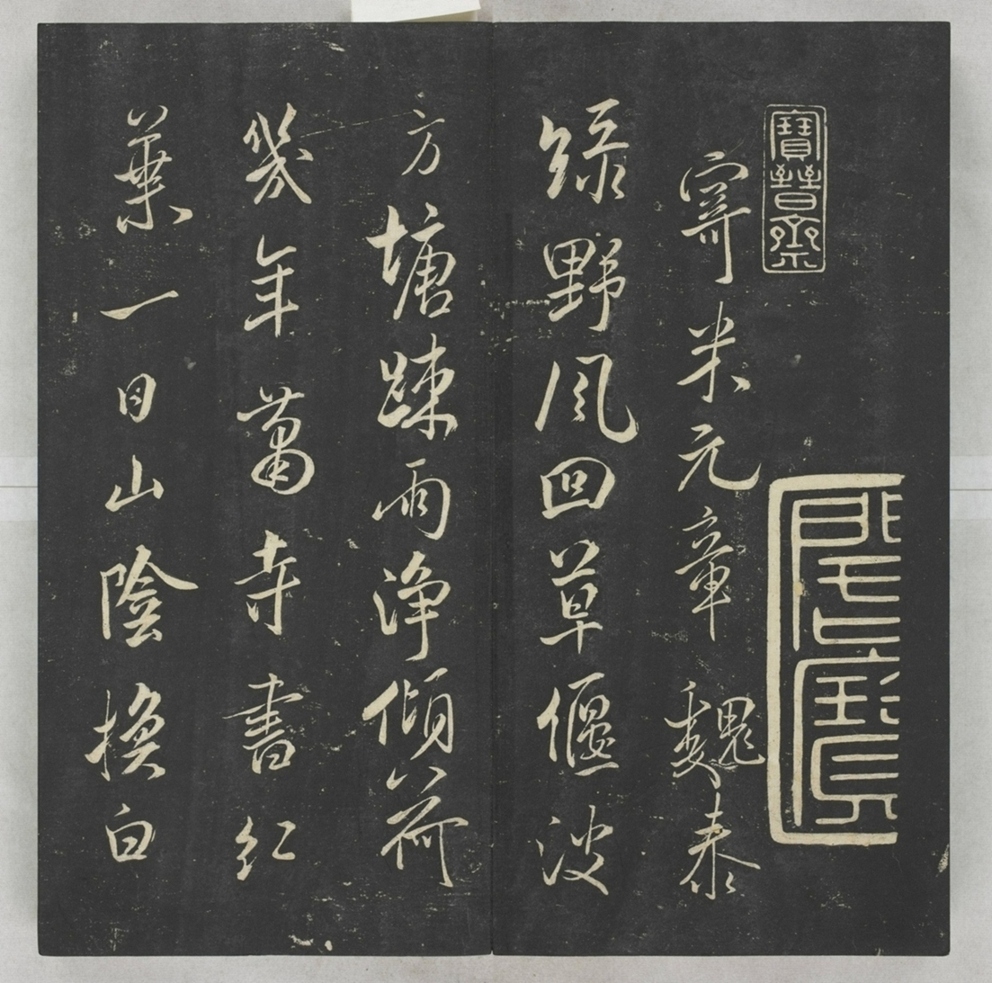 寶晉齋
寄米元章 魏泰
綠野風回草偃波
方塘踈雨淨傾荷
幾年蕭寺書紅
葉一日山陰換白